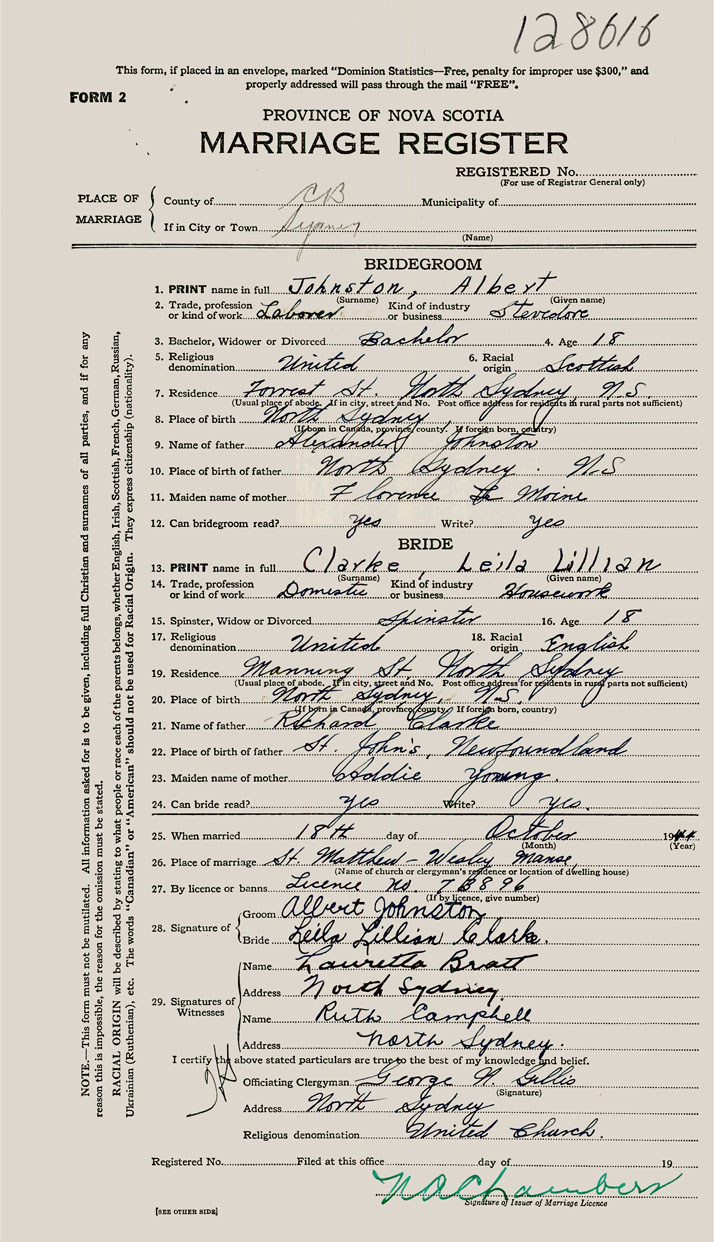 128616
This form, if placed in an envelope, marked “Dominion Statistics—Free, penalty for improper use $300,” and
properly addressed will pass through the mail “FREE”.
FORM 2
PROVINCE OF NOVA SCOTIA
MARRIAGE REGISTER
REGISTERED No.
(For use of Registrar General only)
PLACE OF MARRIAGE
County of CB Municipality of
If in City or Town Sydney
(Name)
BRIDEGROOM
1. PRINT name in full Johnston, Albert
(Surname) (Given name)
2. Trade, profession or kind of work Laborer Kind of industry or business Stevedore
3. Bachelor, Widower or Divorced Bachelor 4. Age 18
5. Religious denomination United 6. Racial origin Scottish
7. Residence Forrest St. North Sydney, N.S.
(Usual place of abode. If in city, street and No. Post office address for residents in rural parts not sufficient)
8. Place of birth North Sydney
(If born in Canada, province, county. If foreign born, country)
9. Name of father Alexander Johnston
10. Place of birth of father North Sydney. N.S
11. Maiden name of mother Florence Le Moine
12. Can bridegroom read? yes Write? yes
BRIDE
13. PRINT name in full Clarke, Leila Lillian
(Surname) (Given name)
14. Trade, profession or kind of work Domestic Kind of industry or business Housework
15. Spinster, Widow or Divorced Spinster 16. Age 18
17. Religious denomination United 18. Racial origin English
19. Residence Manning St. North Sydney
(Usual place of abode. If in city, street and No. Post office address for residents in rural parts not sufficient)
20. Place of birth North Sydney, N.S.
(If born in Canada, province, county. If foreign born, country)
21. Name of father Richard Clarke
22. Place of birth of father St. John's, Newfoundland
23. Maiden name of mother Addie Young.
24. Can bride read? yes Write? yes.
25. When married 18th day of October 1944
(Month) (Year)
26. Place of marriage St. Matthew-Wesley Manse,
(Name of church or clergyman's residence or location of dwelling house)
27. By licence or banns Licence no. 7B896
(If by licence, give number)
28. Signature of
Groom Albert Johnston
Bride Leila Lillian Clarke.
29. Signatures of Witnesses
Name Lauretta Bratt
Address North Sydney.
Name Ruth Campbell
Address North Sydney.
I certify the above stated particulars are true to the best of my knowledge and belief.
Officiating Clergyman George N. Gillis
(Signature)
Address North Sydney
Religious denomination United Church.
Registered No. Filed at this office day of 19
Chambers
Signature of Issuer of Marriage Licence
[SEE OTHER SIDE]
NOTE.—This form must not be mutilated. All information asked for is to be given, including full Christian and surnames of all parties, and if for any
reason this is impossible, the reason for the omission must be stated.
RACIAL ORIGIN will be described by stating to what people or race each of the parents belongs, whether English, Irish, Scottish, French, German, Russian,
Ukrainian (Ruthenian), etc. The words “Canadian” or “American” should not be used for Racial Origin. They express citizenship (nationality).